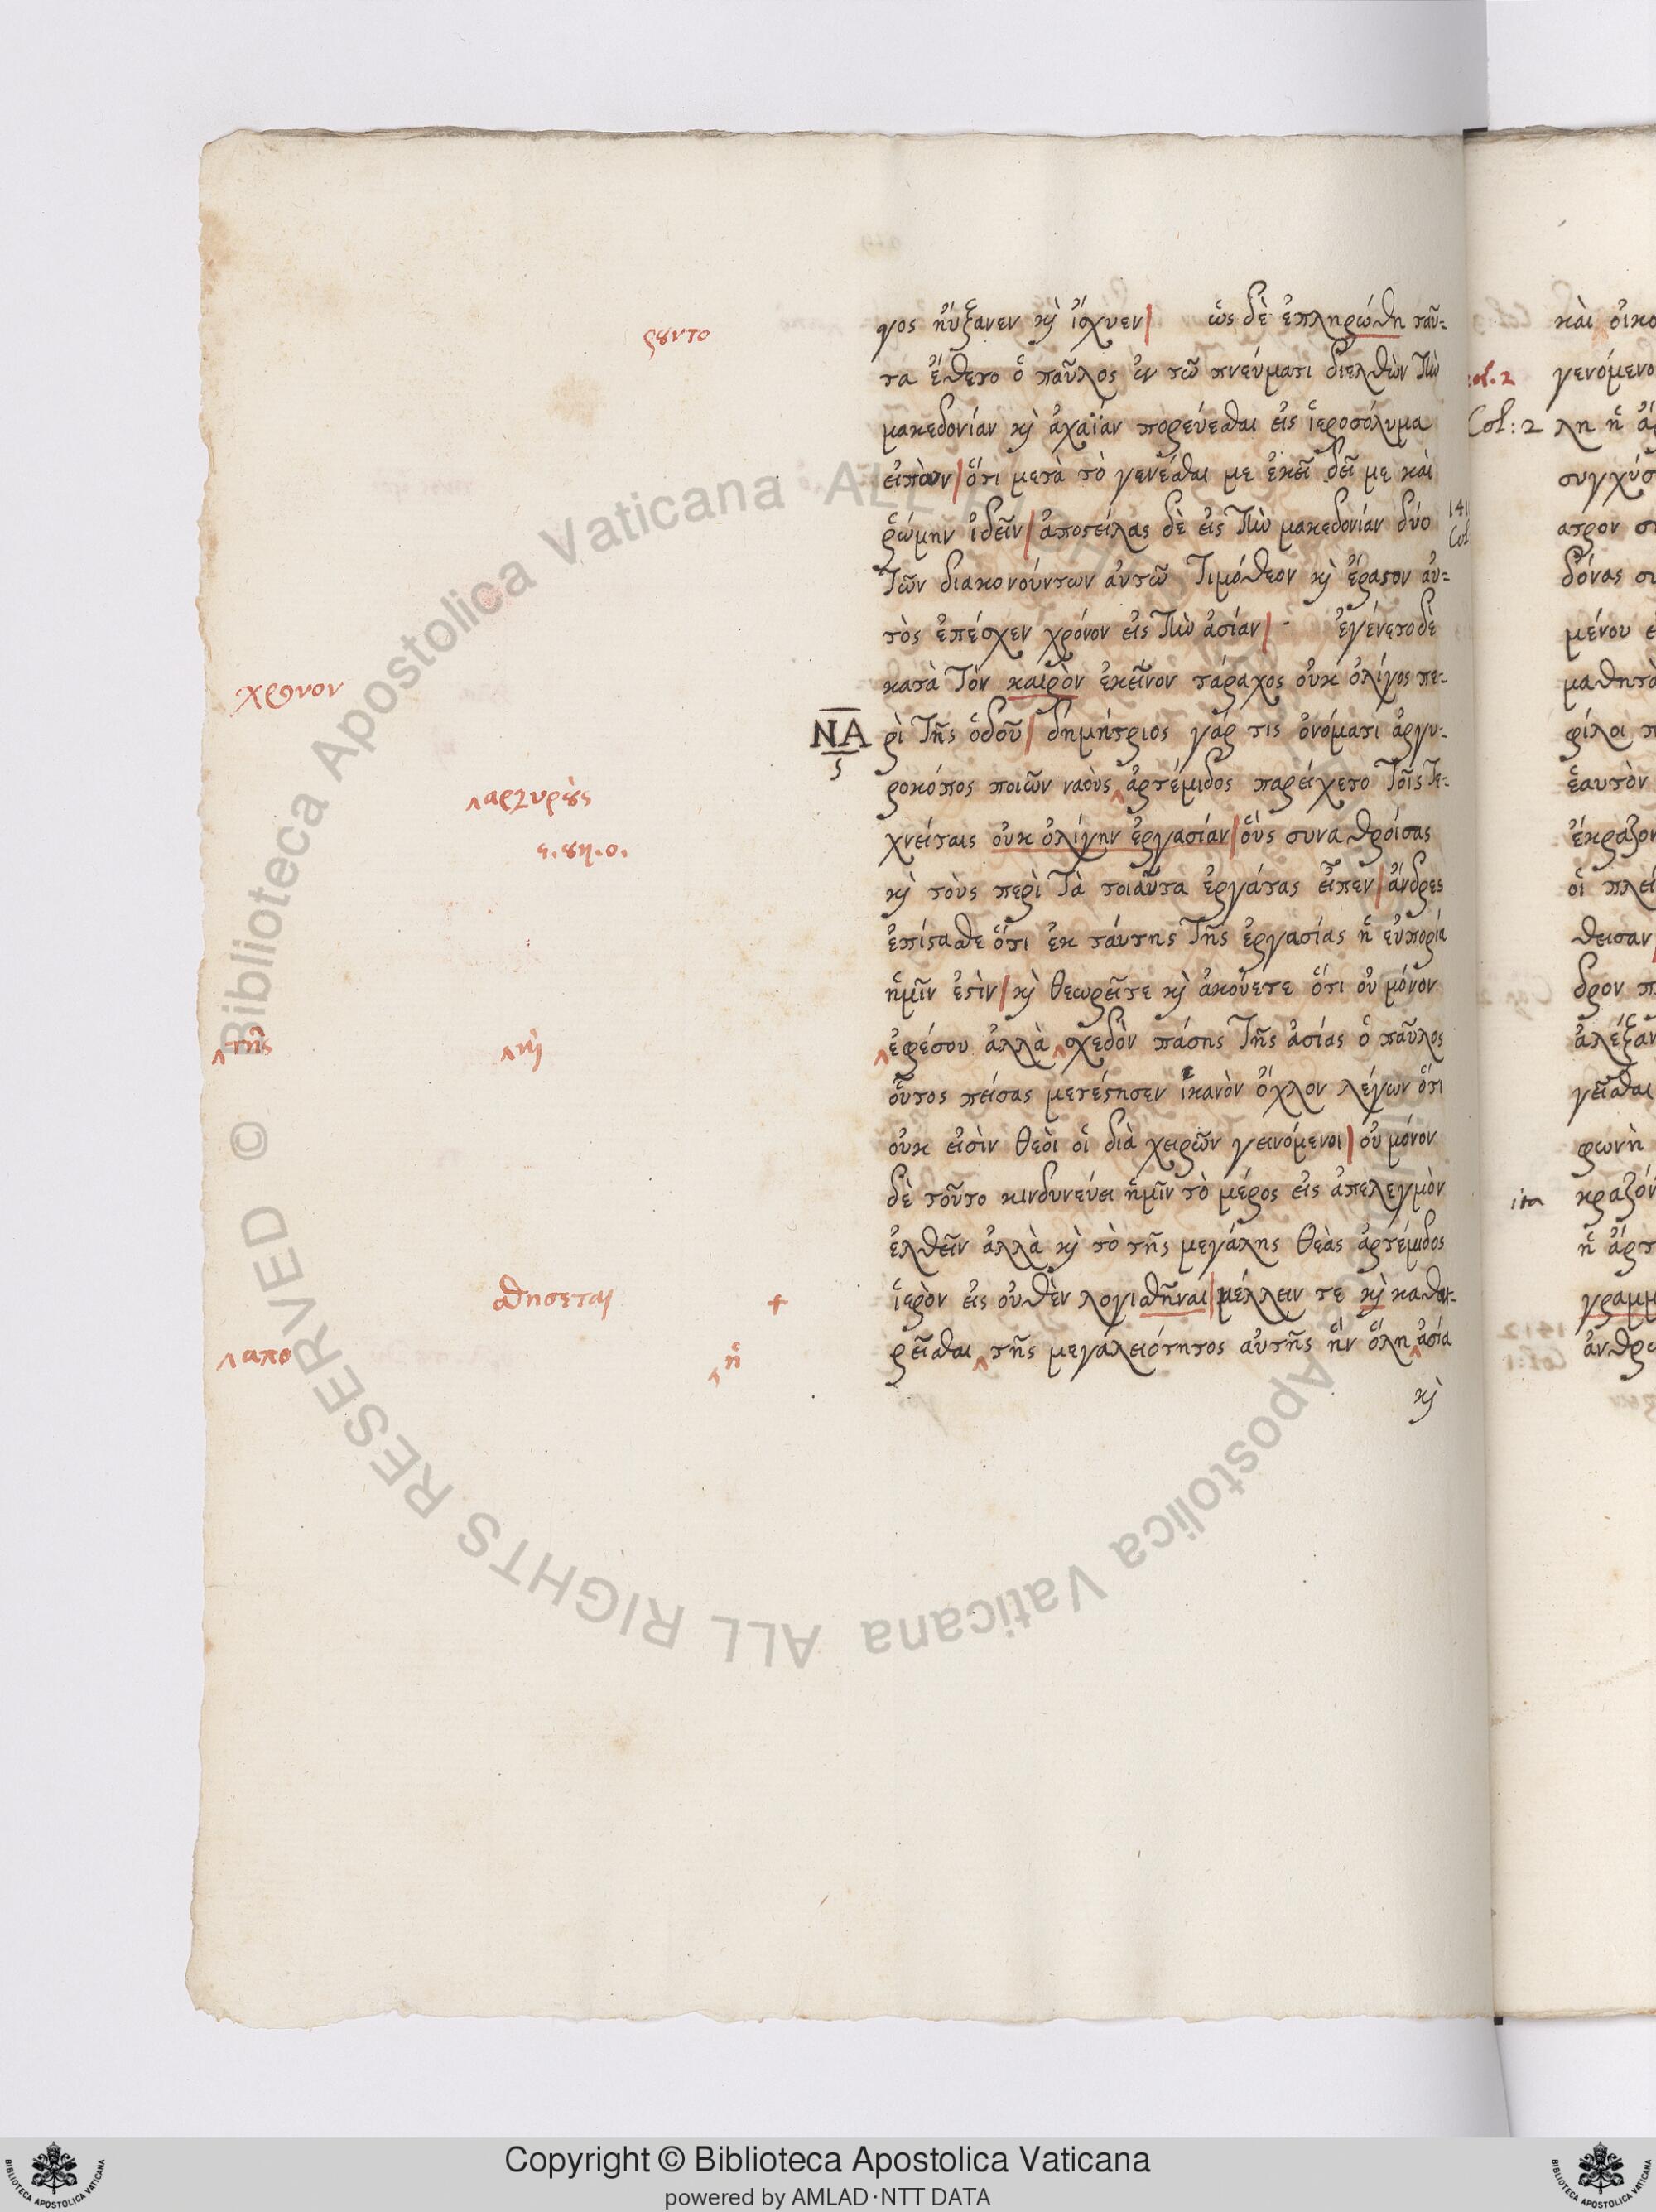 γος ηὔξανεν κỳ ἴσχυεν| ὡς δὲ ἐπληρώθη ταῦ-
τα ἔθετο ὁ παῦλος ἐν τῶ πνεύματι διελθὼν τὴν
μακεδονίαν κỳ ἀχαΐαν πορεύεσθαι εἰς ἱεροσόλυμα
εἰπὼν|ὅτι μετὰ τὸ γενέσθαι με ἐκεῖ δεῖ με καὶ
ῥώμην ἰδεῖν|ἀποστείλας δὲ εἰς τὴν μακεδονίαν δύο
τῶν διακονούντων αὐτῶ τιμόθεον κỳ ἔραστον αὐ-
τὸς ἐπέσχεν χρόνον εἰς τὴν ἀσίαν| ἐγένετο δὲ
κατὰ τὸν καιρὸν ἐκεῖνον τάραχος οὐκ ὀλίγος πε-
ρὶ τῆς ὁδοῦ| δημήτριος γάρ τις ὀνόματι ἀργυ-
ροκόπος ποιῶν ναοὺς ‸ἀρτέμιδος παρείχετο τοῖς τε-
χνείταις οὐκ ὀλίγην ἐργασίαν|οὓς συναθροίσας
κỳ τοὺς περὶ τὰ τοιαῦτα ἐργάτας εἶπεν|ἄνδρες
ἐπίστασθε ὅτι ἐκ ταύτης τῆς ἐργασίας ἡ εὐπορία
ἡμῖν ἐστὶν|κỳ θεωρεῖτε κỳ ἀκούετε ὅτι οὐ μόνον
‸ἐφέσου ἀλλὰ ‸σχεδὸν πάσης τῆς ἀσίας ὁ παῦλος
οὗτος πείσας μετέστησεν ἱκανὸν ὄχλον λέγων ὅτι
οὐκ εἰσὶν θεοὶ οἱ διὰ χειρῶν γεινόμενοι|οὐ μόνον
δὲ τοῦτο κινδυνεύει ἡμῖν τὸ μέρος εἰς ἀπελεγμὸν
ἐλθεῖν ἀλλὰ κỳ τὸ τῆς μεγάλης θεᾶς ἀρτέμιδος
ἱερὸν εἰς οὐθὲν λογισθῆναι|μέλλειν τε κỳ καθαι-
ρεῖσθαι ‸τῆς μεγαλειότητος αὐτῆς ἣν ὅλη ‸ἀσία
κỳ
ρουντο
χρονον
ΝΑ
ς
‸αργυρους
‸της
‸κỳ
σθησεται
+
‸απο
‸ἡ
Col: 2
ita
Copyright © Biblioteca Apostolica Vaticana
powered by AMLAD·NTT DATA
© Biblioteca Apostolica Vaticana ALL RIGHTS RESERVED